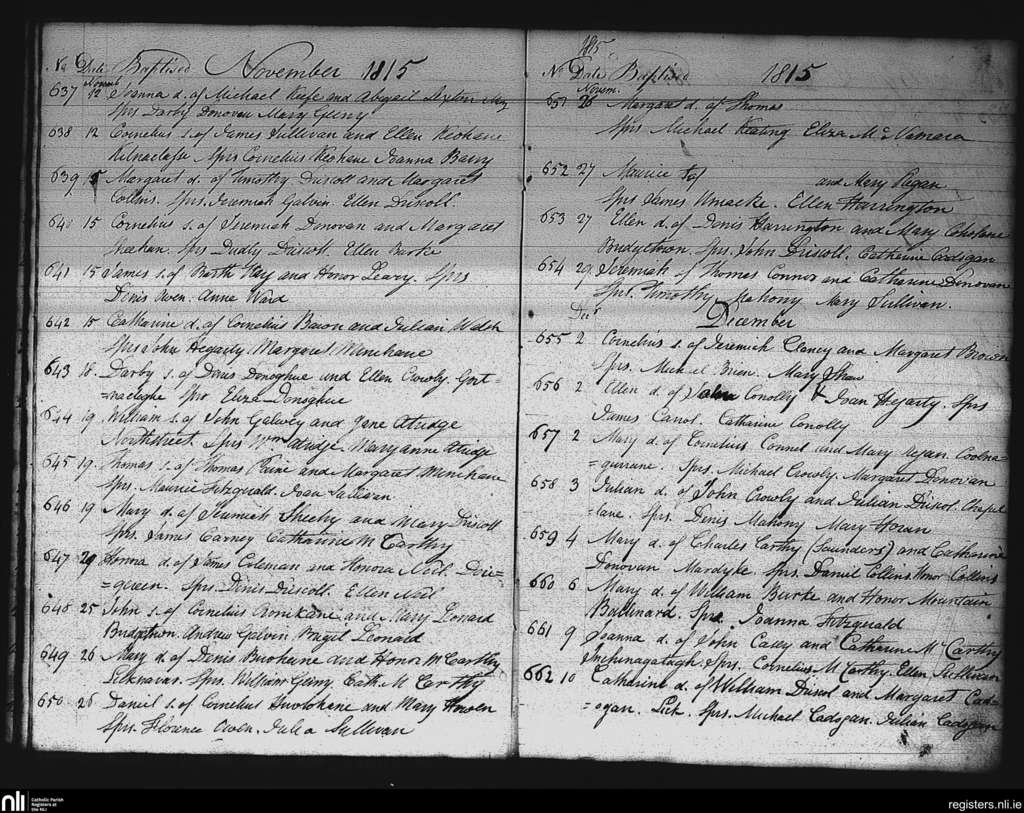 No Date Baptised November 1815
Novemb
637 12 Joanna d. of Michael Keefe and Abigail
Sprs Darby Donovan Mary Geery
638 12 Cornelius s. of James Sullivan and Ellen Keohane
Sprs Cornelius Keohane Joanna Barry
639 15 Margaret d. of Timothy Driscoll and Margaret
Collins. Sprs. Jeremiah Galvin. Ellen Driscoll.
640 15 Cornelius s. of Jeremiah Donovan and Margaret
Meehan. Sprs Dudly Driscoll. Ellen Burke
641 15 James s. of Barth Hay and Honor Leary. Sprs
Denis Owen. Anne Ward
642 15 Catharine d. of Cornelius Baron and Julian Walsh
Sprs John Hegarty. Margaret Minehane
643 18. Darby s. of Denis Donoghue and Ellen Crowly. Gort=
=nacloghe Spr Eliza Donoghue
644 19. William s. of John Galwey and Jane Attridge
Northstreet. Sprs Wm Attridge. Maryanne Attridge
645 19. Thomas s. of Thomas Paine and Margaret Minehane
Sprs. Maurice Fitzgerald. Joan Sullivan
646 19 Mary d. of Jeremiah Sheehy and Mary Driscoll
Sprs. James Carney Catharine McCarthy
647 20 Honora d. of James Coleman and Honora Neil.
=queen. Sprs. Denis Driscoll. Ellen Neil
648 25 John s. of Cornelius and Mary Leonard
Bridgetown. Andrew Galvin. Bragil Leonard
649 26 Mary d. of Denis Buohane and Honor McCarthy
Sprs. William Geary Cath. McCarthy
650 26 Daniel s. of Cornelius and Mary Howen
Sprs. Florence Owen. Julia Sullivan
1815
No Date Baptised 1815
Novem.
651 26 Margaret d. of Thomas
Sprs Michael Keating Eliza McNamara
652 27 Maurice s of and Mary Pagan
Sprs James. Ellen Harrington
653 27 Ellen d. of Denis Harrington and Mary Cohalane
Bridgetown. Sprs. John Driscoll. Catharine Cadogan
654 29 Jeremiah of Thomas Connor and Catharine Donovan
Sprs. Timothy Mahony Mary Sullivan.
Decr December
655 2 Cornelius s. of Jeremiah Clancy and Margaret Brown
Sprs. Michael Brien. Mary Shaw
656 2 Ellen d. of John Conolly & Joan Hegarty. Sprs
James Carrol. Catharine Conolly
657 2 Mary d. of Cornelius Connel and Mary Regan. Coolna=
=gurrane. Sprs. Michael Crowly. Margaret Donovan
658 3 Julian d. of John Crowly and Julian Driscol. Chapel
=lane. Sprs. Denis Mahony Mary Horan
659 4 Mary d. of Charles Carthy (Saunders) and Catharine
Donovan Mardyke. Sprs. Daniel Collins. Honor Collins
660 6 Mary d. of William Burke and Honor Mountain
Ballinard. Sprs. Joanna Fitzgerald
661 9 Joanna d. of John Casey and Catharine McCarthy
Sprs. Cornelius McCarthy. Ellen Sullivan
662 10 Catharine d. of William Driscol and Margaret Cad=
=ogan. Lick. Sprs. Michael Cadogan. Julian Cadogan
nli Catholic Parish
Registers at
the NLI
registers.nli.ie